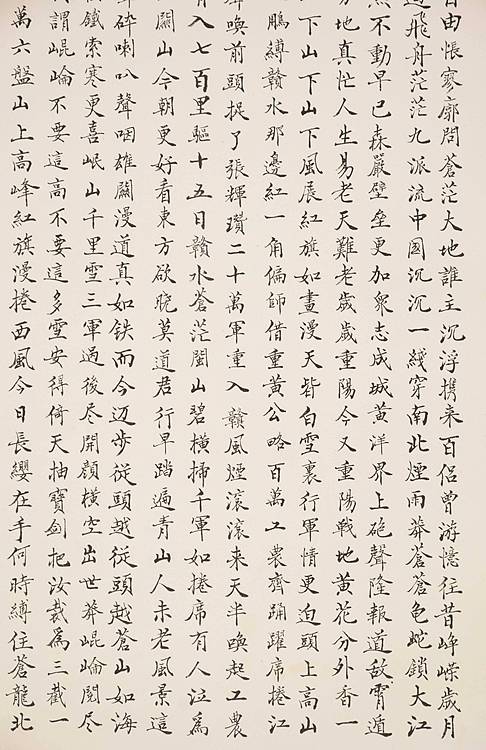 自由悵寥廓問蒼茫大地誰主沉浮携来百侣曾游憶往昔峥嵘歲月
飛舟茫茫九派流中國沉沉一綫穿南北煙雨莽蒼蒼龜蛇鎖大江
然不動早已森嚴壁壘更加衆志成城黄洋界上砲聲隆報道敵霄遁
分地真忙人生易老天難老歲歲重陽今又重陽戰地黄花分外香一
下山下山下風展紅旗如畫漫天皆白雪裏行軍情更迫頭上高山
鵬縛贛水那邊紅一角偏師借重黄公略百萬工農齊踴躍席捲江
唤前頭捉了張輝瓚二十萬軍重入贛風煙滚滚来天半唤起工農
入七百里驅十五日贛水蒼茫閩山碧橫掃千軍如捲席有人泣為
關山今朝更好看東方欲曉莫道君行早踏遍青山人未老風景這
碎喇叭聲咽雄關漫道真如铁而今迈步從頭越從頭越蒼山如海
鐵索寒更喜岷山千里雪三軍過後尽開顔橫空出世莽崐崙閲尽
謂崐崙不要這高不要這多雪安得倚天抽寶劍把汝裁為三截一
萬六盤山上高峰紅旗漫捲西風今日長纓在手何時縛住蒼龍北